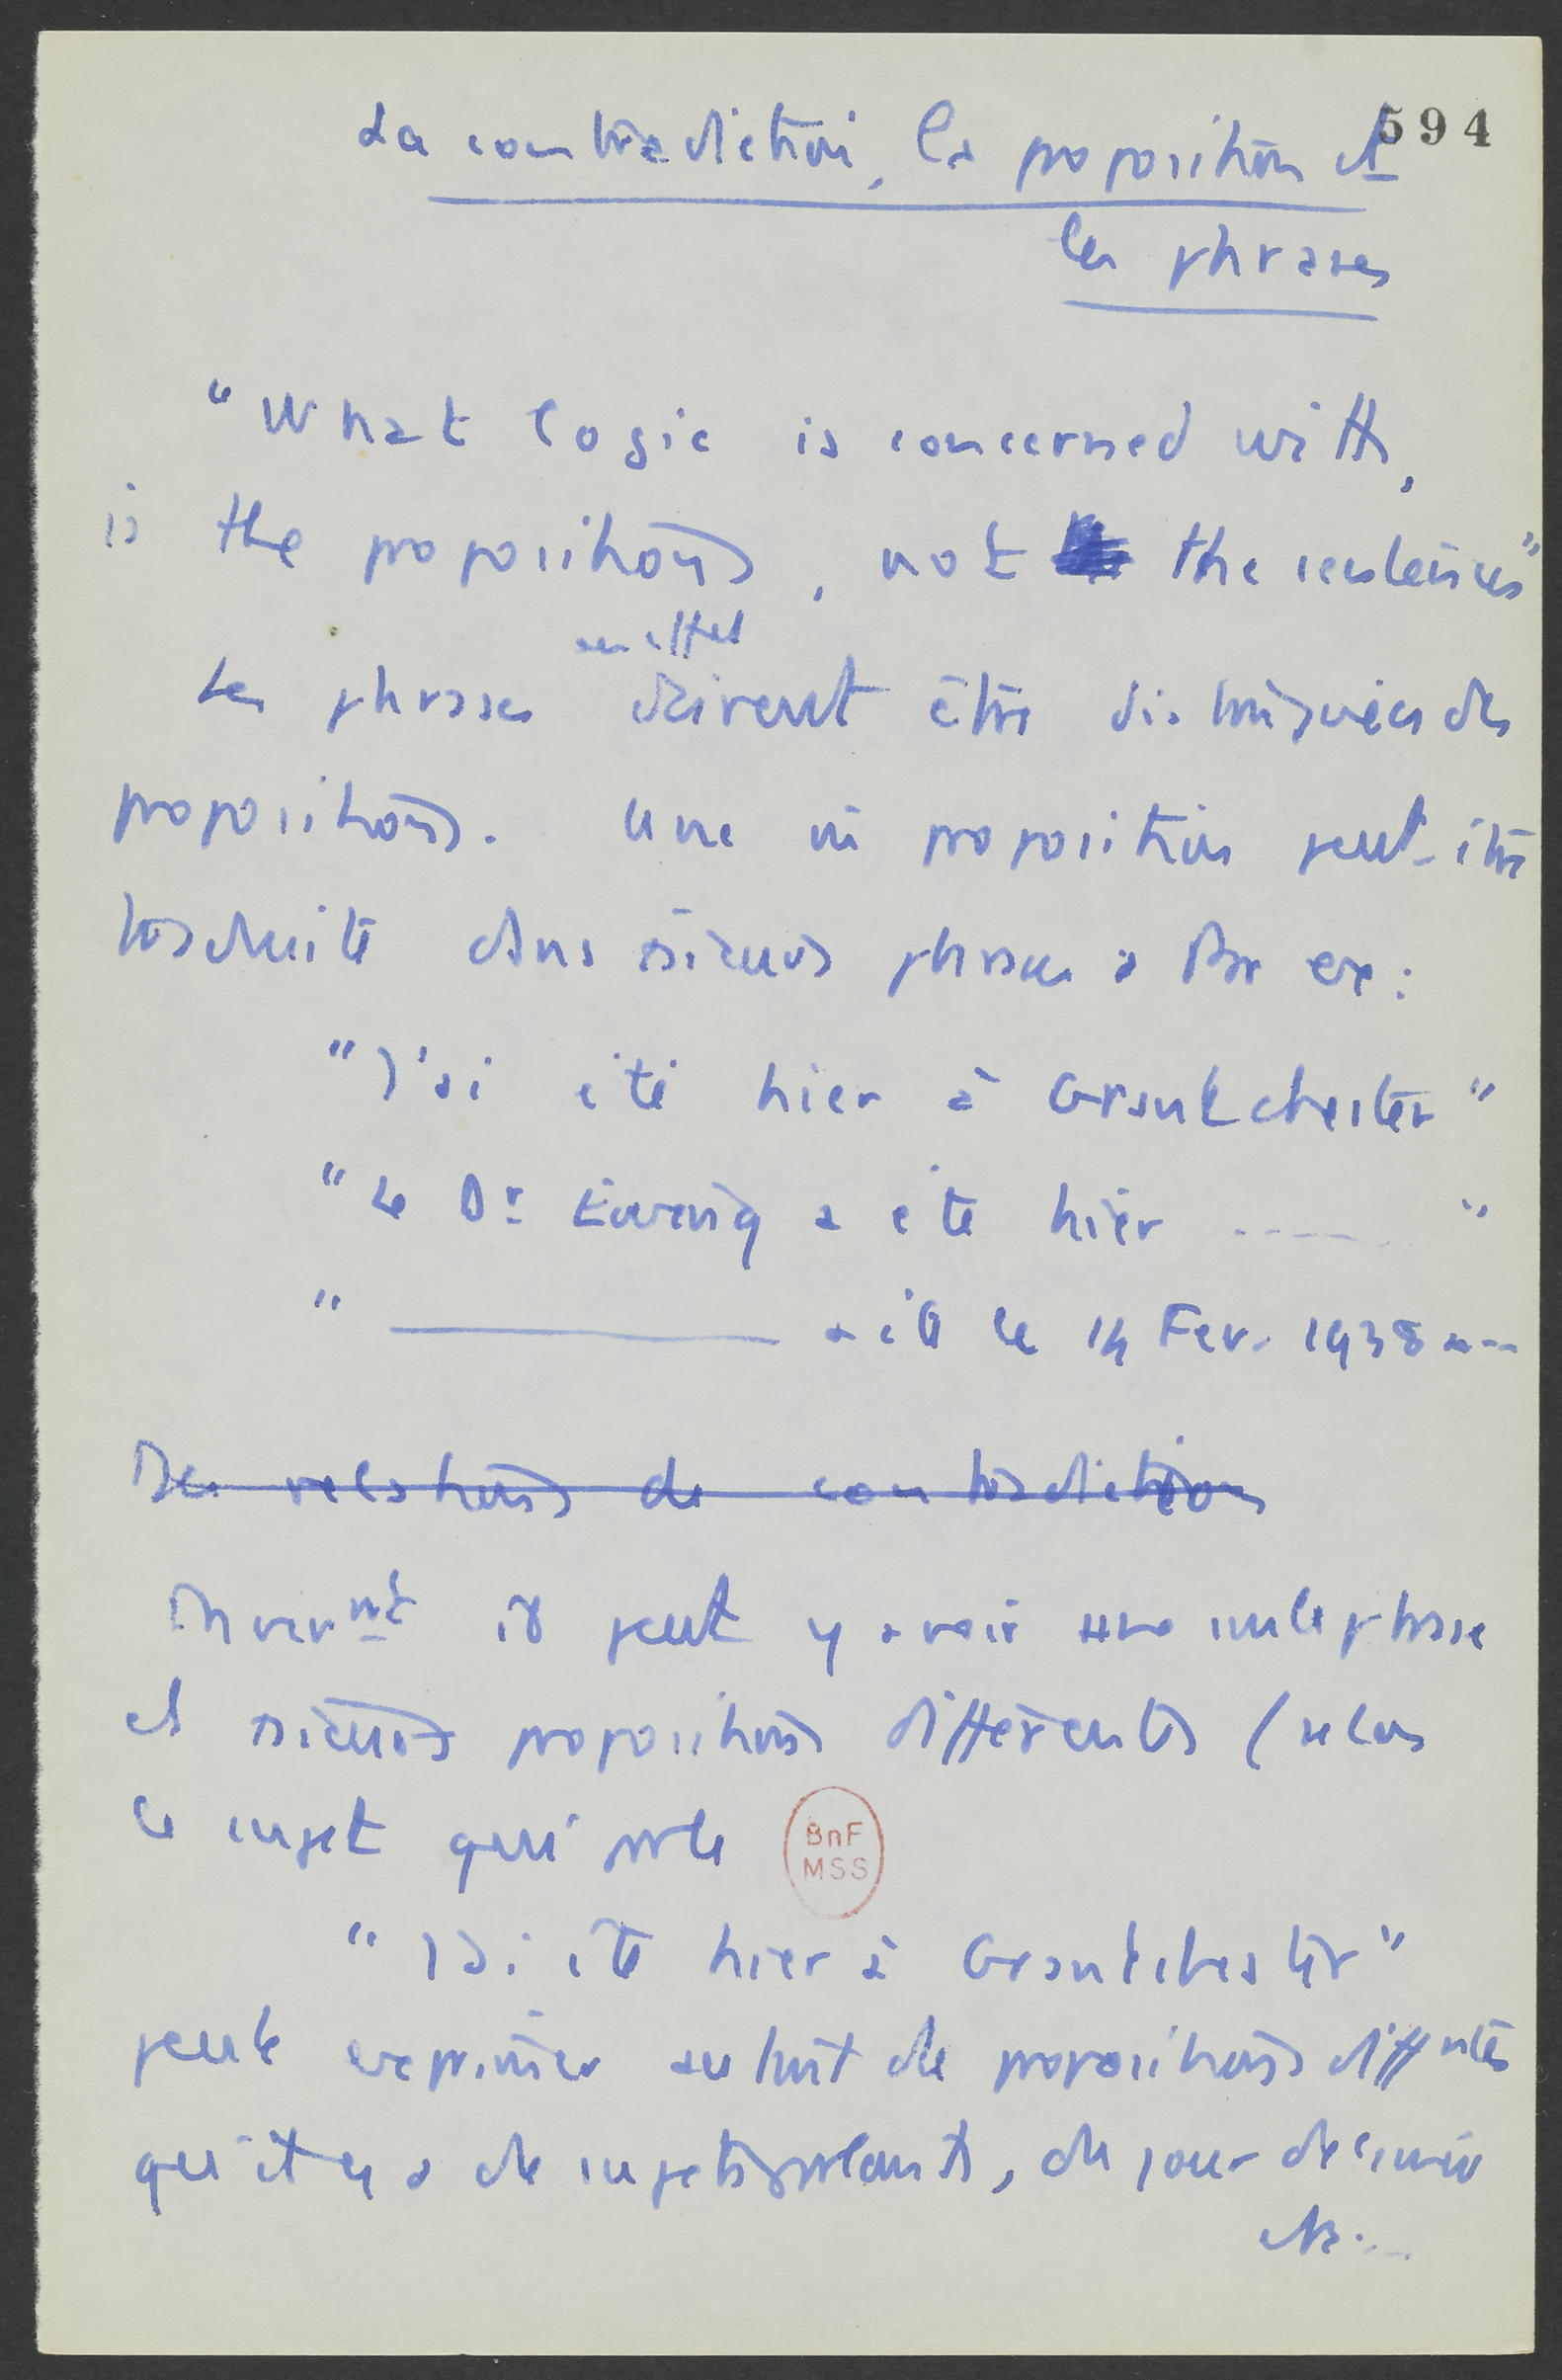 594
La contradiction, la proposition et
les phrases
"What logic is concerned with,
is the propositions, not the sentences"
en effet
Les phrases doivent être distinguées des
propositions. Une m̂ proposition peut-être
traduite dans phrases Par ex:
"J'ai été hier à Grantchester"
"Le Dr Ewing a été hier ----- "
" ———— a été le 14 Fev. 1938 ---
Des relations de contradiction
Invermt il peut y avoir une seule phrase
et propositions différentes (selon
le sujet qui parle
BnF
MSS
"J'ai été hier à Grantchester"
peut exprimer autant de propositions diffntes
qu'il y a de sujets parlants, de jour de l'année
etc...